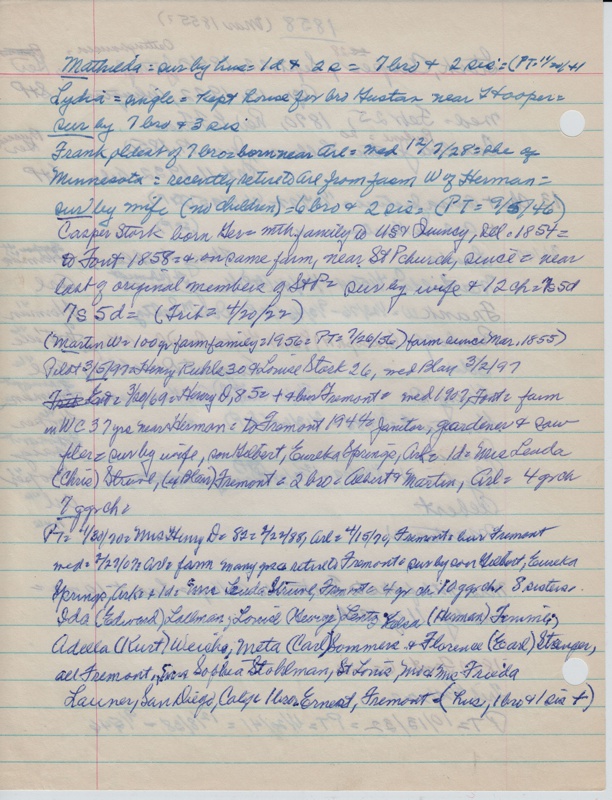 Mathilda = sur by hus = 1d & 2 s = 7 bro & 2 sis = (PT = 11/20/41
Lydia = single = kept house for bro Gustav near Hooper =
sur by 7 bro & 3 sis
Frank oldest of 7 bro = born near Arl = med 12/7/28 = she of
Minnesota = recently retire to Arl from farm W of Herman =
sur by wife (no children) = 6 bro & 2 sis = (PT = 9/5/46)
Casper Stork born Ger = with family to US & Quincy, Ill = 1854 =
to Font 1858 = & on same farm, near St P church, since = near
last of original members of St P = sur by wife & 12 ch = 7s 5d
7s 5d = (Trib = 4/20/22)
(Martin W = 100 yr farm family = 1956 = PT = 7/26/56) farm since Mar, 1855)
Pilot 3/5/97 = Henry Kuhle 30 & Louise Stork 26, med Blair 3/2/97
3/20/69 = Henry D, 85 = + & bur Fremont = med 1907, Font = farm
in WC 37 yrs near Herman = to Fremont 1944 = janitor, gardener & saw
filer = sur by wife, son Gilbert, Eureka Springs, Ark = 1d = Mrs Leuda
(Chris) Struve, (ex Blair) Fremont = 2 bro = Albert & Martin, Arl = 4 grch
7 ggrch =
PT = 4/30/70 = Mrs Henry D = 82 = 2/22/88, Arl = 4/15/70, Fremont = bur Fremont
med = 2/27/07 = Arl = farm many yrs = retire to Fremont = sur by son Gilbert, Eureka
Springs, Ark = & 1d = Mrs Leuda Struve, Fremont = 4 gr ch = 10 ggrch = 8 sisters =
Ida (Edward) Lallman, Louise (George) Lentz, Helen (Herman) Timme,
Adella (Kurt) Weigha, Meta (Carl) Sommers & Florence (Earl) Stranger,
all Fremont, Sophia Stohlman, St Louis, Mo & Mrs Frieda
Launer, San Diego, Calif = 1 bro Ernest, Fremont = (hus, 1 bro & 1 sis +)